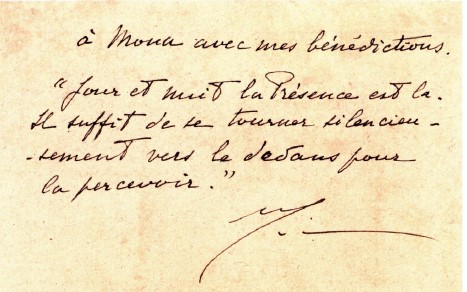 à Mona avec mes bénédictions.
"Jour et nuit la Présence est là.
Il suffit de se tourner silencieu-
-sement vers le dedans pour
la percevoir."